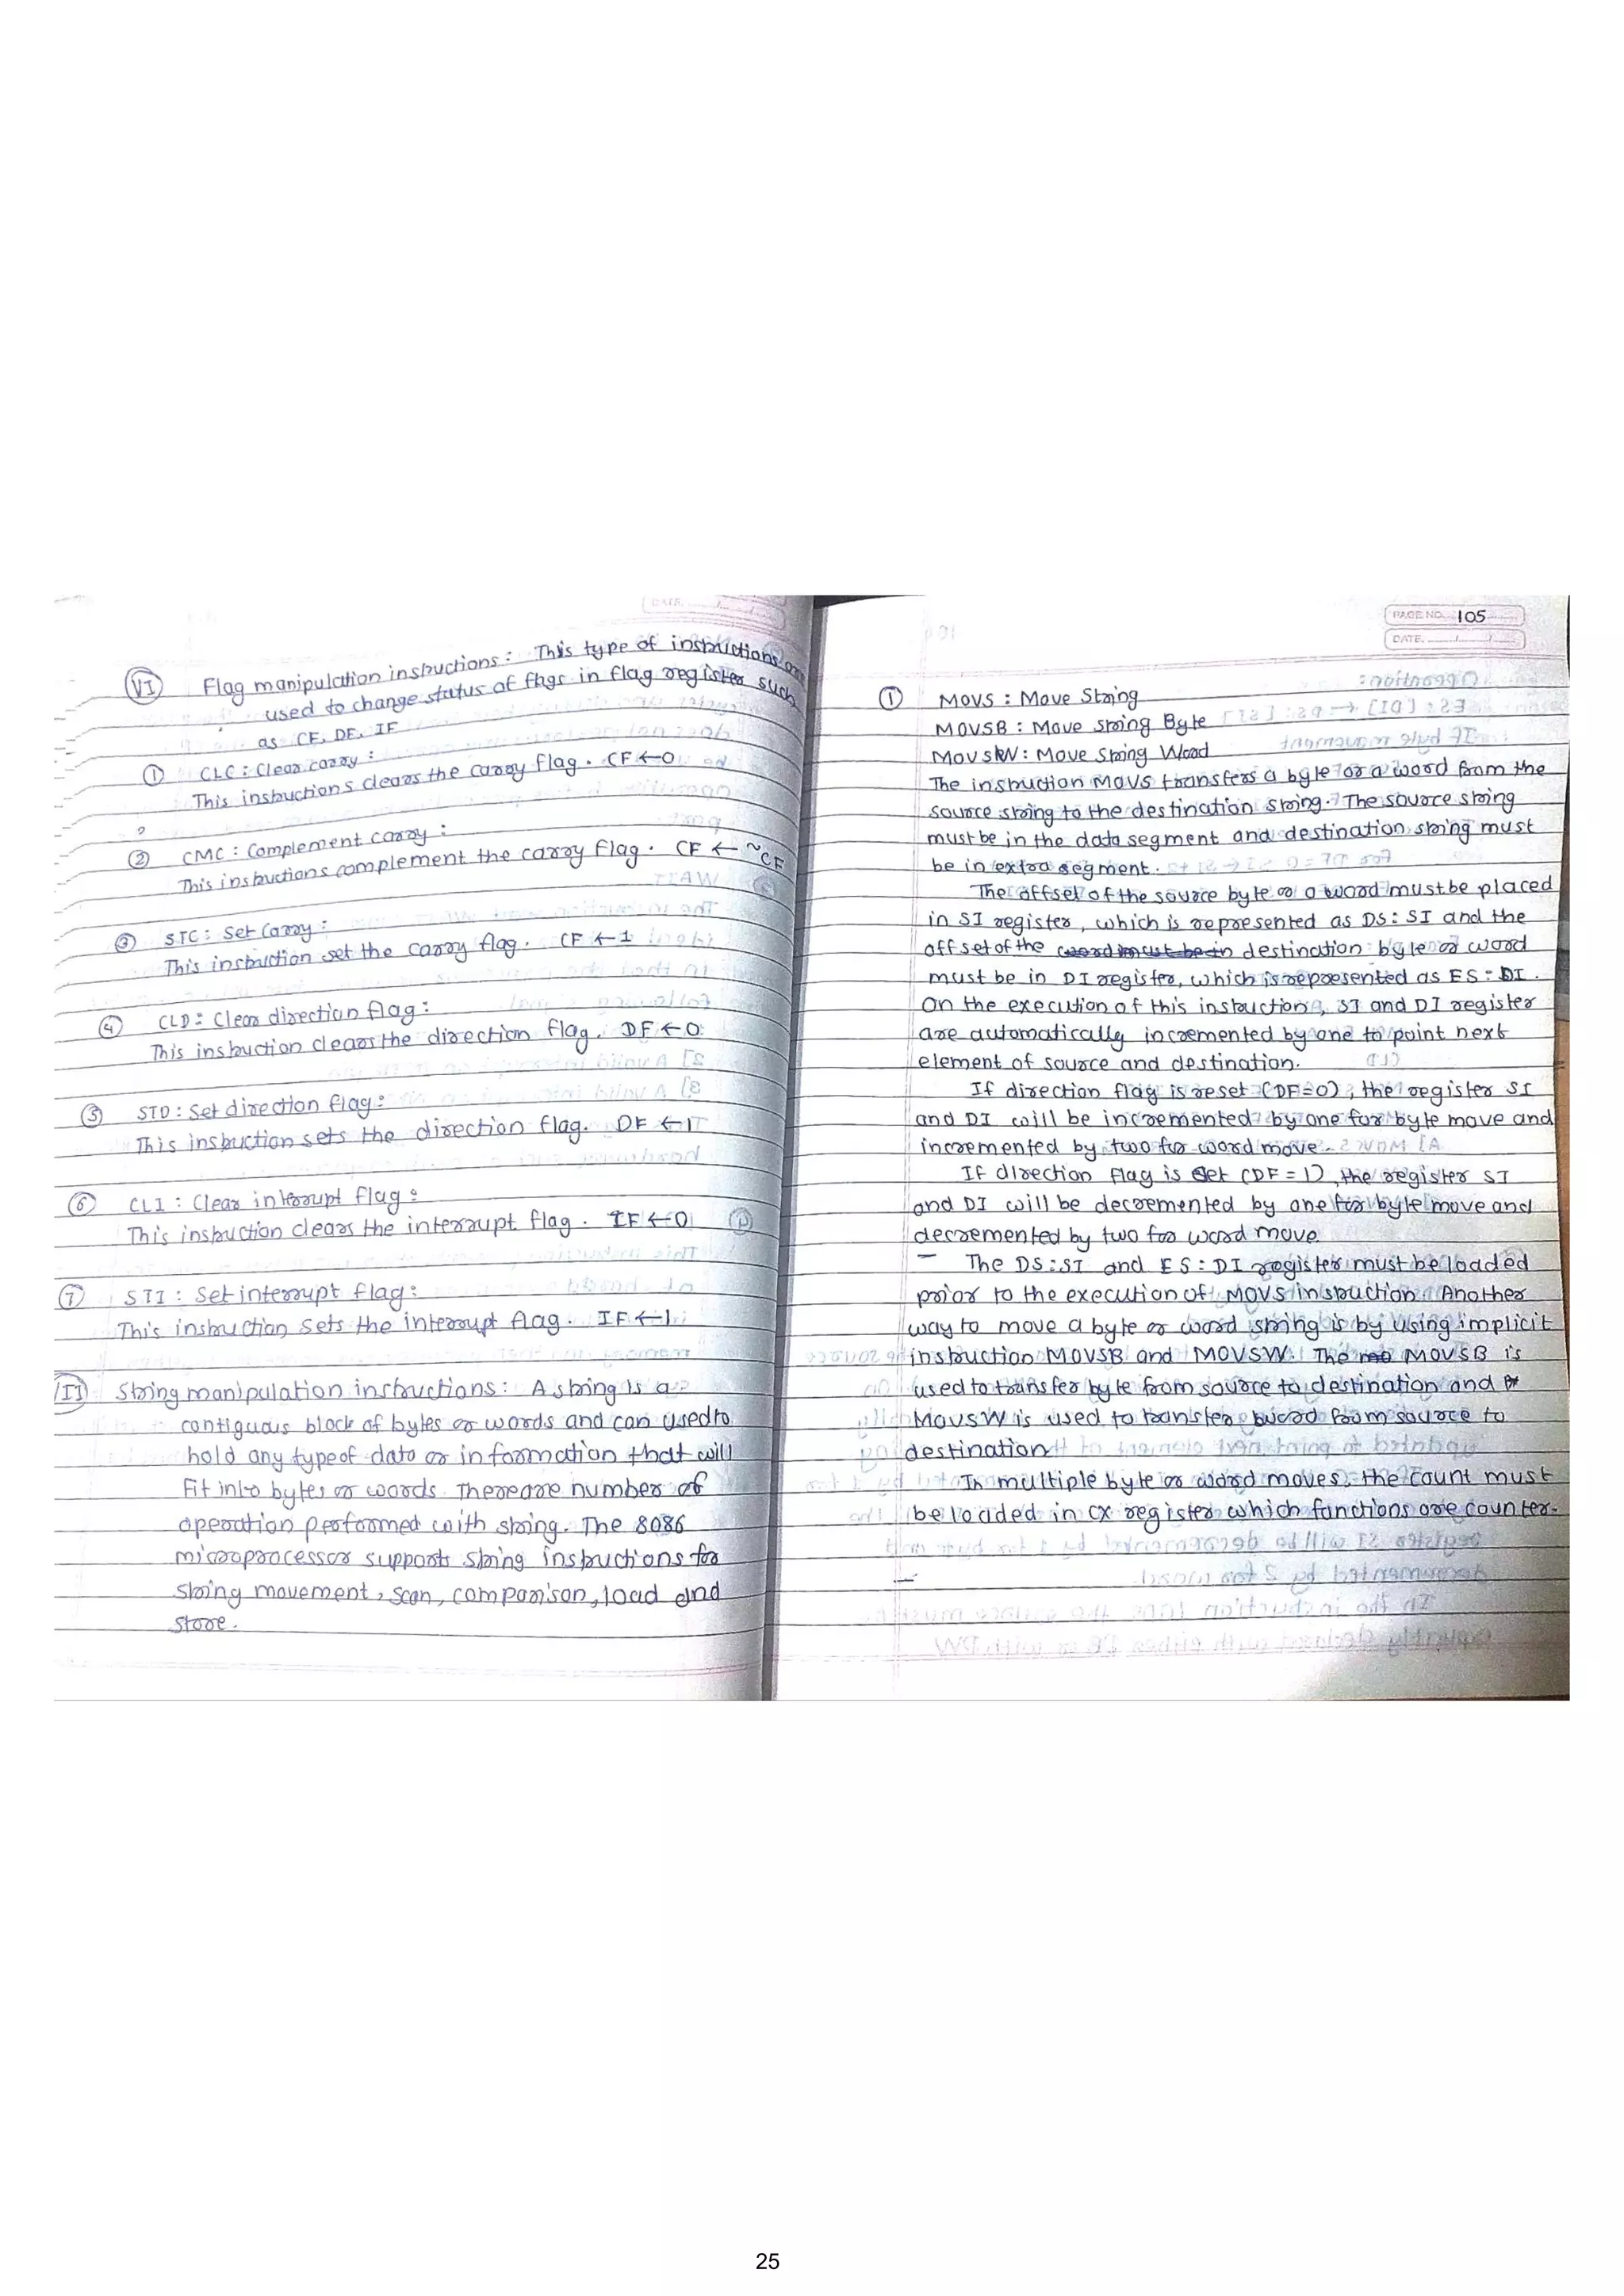 VI Flag manipulation instructions : This type of instructions are
used to change status of flags in flag register such
as CF, DF, IF
① CLC : Clear carry :
This instructions clears the carry flag. CF ← 0
② CMC : Complement carry :
This instructions complement the carry flag. CF ← ~CF
③ STC : Set Carry :
This instruction set the carry flag. CF ← 1
④ CLD : Clear direction flag :
This instruction clears the direction flag. DF ← 0
⑤ STD : Set direction flag :
This instruction sets the direction flag. DF ← 1
⑥ CLI : Clear interrupt flag :
This instruction clears the interrupt flag. IF ← 0
⑦ STI : Set interrupt flag :
This instruction sets the interrupt flag. IF ← 1
II String manipulation instructions : A string is a
contiguous block of bytes or words and can used to
hold any type of data or information that will
fit into bytes or words. There are number of
operation performed with string. The 8086
microprocessor supports string instructions for
string movement, scan, comparison, load and
store.
PAGE NO. 105
DATE.
① MOVS : Move String
MOVSB : Move string Byte
MOVSW : Move String Word
The instruction MOVS transfers a byte or a word from the
source string to the destination string. The source string
must be in the data segment and destination string must
be in extra segment.
The offset of the source byte or a word must be placed
in SI register, which is represented as DS : SI and the
offset of the destination byte or word
must be in DI register, which is represented as ES : DI.
On the execution of this instruction, SI and DI register
are automatically incremented by one to point next
element of source and destination.
If direction flag is reset (DF = 0), the register SI
and DI will be incremented by one for byte move and
incremented by two for word move.
If direction flag is set (DF = 1), the register SI
and DI will be decremented by one for byte move and
decremented by two for word move.
— The DS : SI and ES : DI register must be loaded
prior to the execution of MOVS instruction. Another
way to move a byte or word string is by using implicit
instruction MOVSB and MOVSW. The MOVSB is
used to transfer byte from source to destination and
MOVSW is used to transfer word from source to
destination
In multiple byte or word moves, the count must
be loaded in CX register which functions are counter.
25